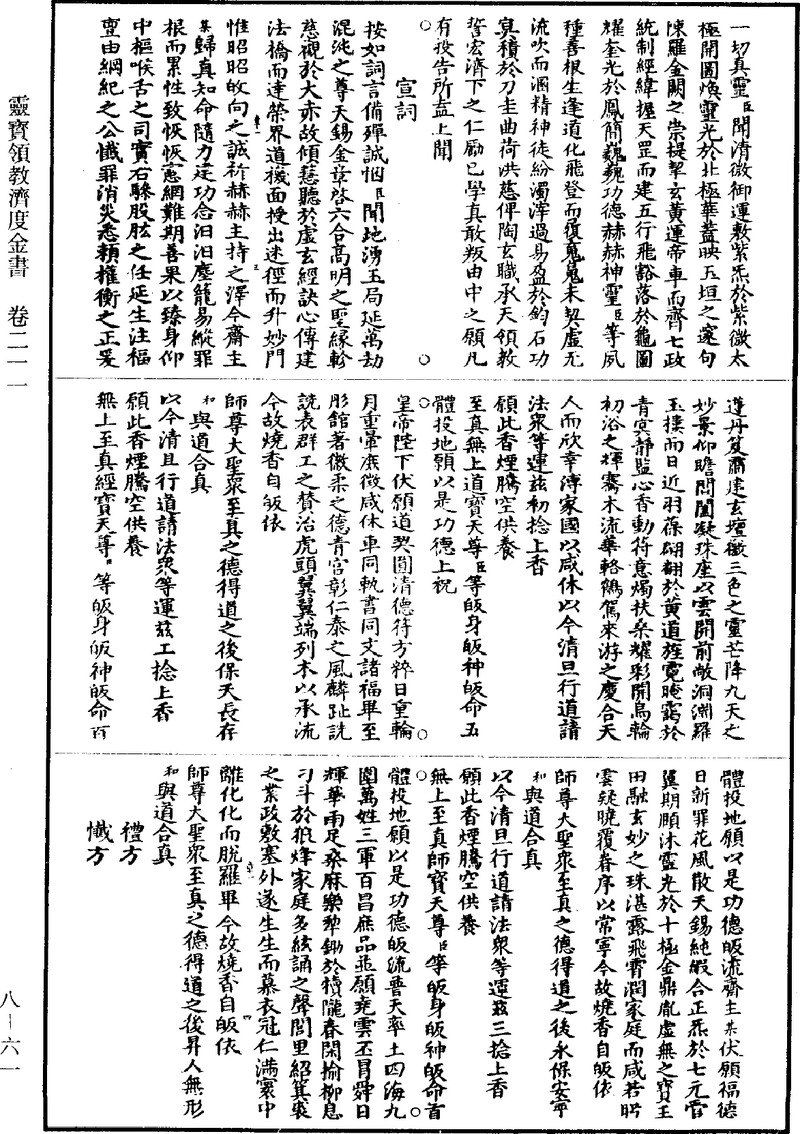 靈寶領教濟度金書　卷二一一
八－六一
一切真靈臣聞清微御運敷紫炁於紫微太
極開圖煥靈光於北極華蓋映五垣之邃句
陳羅金闕之崇提挈玄黃運帝車而齊七政
統制經緯握天罡而建五行飛谿落於龜圖
耀奎光於鳳簡巍巍功德赫赫神靈臣等夙
種善根生逢道化飛登而復嵬嵬未契虛无
流吹而涸精神徒紛濁滓過易盈於鈞石功
莫積於刀圭曲荷洪慈俾陶玄職承天領教
誓宏濟下之仁勵己學真敢叛由中之願凡
有投告所盍上聞
○　　　　　　　　　○
宣詞
按如詞言備殫誠悃臣聞地湧玉局延萬劫
混沌之尊天錫金章啓六合高明之聖緣軫
慈觀於大赤故傾慈聽於虛玄經訣心傳建
法橋而達榮界道機面授出迷徑而升妙門
惟昭昭攸向之誠祈赫赫主持之澤今齋主
某歸真知命隨力建功念汩汩塵籠易縱罪
根而累性致恢恢憲網難期善果以臻身仰
中樞喉舌之司實右驂股肱之任延生注福
亶由綱紀之公懺罪消災悉賴權衡之正爰
遵丹笈肅建玄壇徹三色之靈芒降九天之
妙景仰瞻閶闔凝珠座以雲開前敞洞淵羅
玉樓而日近羽葆翩翩於黃道旌霓晻靄於
青冥靜監心香動符意燭扶桑耀彩開烏輪
初浴之輝騫木流華輅鶴駕來游之慶合天
人而欣幸溥家國以咸休以今清旦行道請
法衆等運茲初捻上香
願此香煙騰空供養
至真無上道寶天尊臣等皈身皈神皈命五
體投地願以是功德上祝
○　　　　　　　　　○
皇帝陛下伏願道契圓清德符方粹日重輪
月重暈庶徵咸休車同軌書同文諸福畢至
彤館著徽柔之德青宮彰仁泰之風麟趾詵
詵表群工之贊治虎頭翼翼端列本以承流
今故燒香自皈依
師尊大聖衆至真之德得道之後保天長存
和與道合真
以今清旦行道請法衆等運茲工捻上香
願此香煙騰空供養
無上至真經寶天尊臣等皈身皈神皈命百
體投地願以是功德皈流齋主某伏願福德
日新罪花風散天錫純嘏合正炁於七元官
冀期願沐靈光於十極金鼎胤虛無之寶玉
田融玄妙之珠湛露飛霄潤家庭而咸若昭
雲疑曉覆春序以常寧今故燒香自皈依
師尊大聖衆至真之德得道之後永保安寧
和與道合真
以今清旦行道請法衆等運茲三捻上香
願此香煙騰空供養
無上至真師寶天尊臣等皈身皈神皈命首
體投地願以是功德皈流普天率土四海九
○　　　　　　　　　○
圍萬姓三軍百昌庶品並願堯雲丕冐舜日
輝華雨足桑麻樂犁鋤於犢隴春閑榆柳息
刁斗於狼烽家庭多絃誦之聲閭里紹箕裘
之業政敷塞外遂生生而慕衣冠仁滿寰中
離化化而脫羅畢今故燒香自皈依
師尊大聖衆至真之德得道之後昇入無形
和與道合真
禮方
懺方